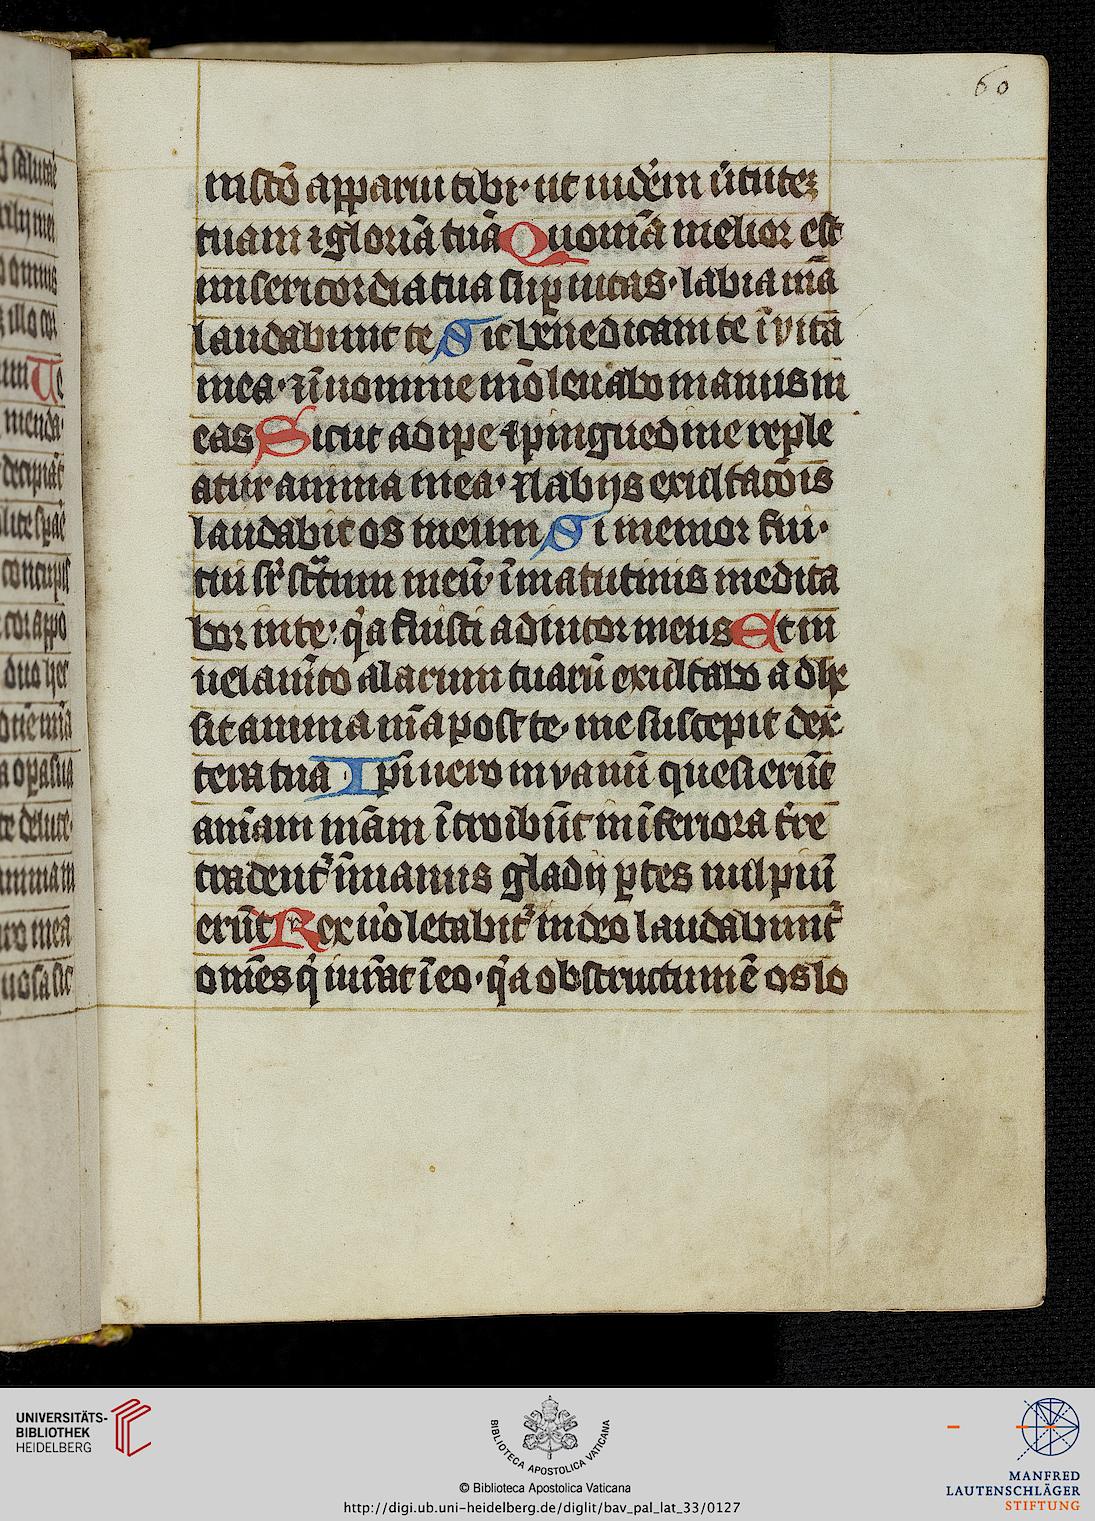 60
in scō apparui tibi· ut uidẽm u̾tutez
tuam ⁊ gloriā tuā Quoniā melior est
misericordia tua suꝑ uitas· labia mā
laudabunt te Sic benedicam te ī vita
mea· ⁊ ī nomine mō leuabo manus m
eas Sicut adipe ⁊ pinguedine reple
atur anima mea· ⁊ labijs exultacōis
laudabit os meum Si memor fui·
tui sr̄ strātum meū· ī matutinis medita
bor in te· q̇a fuisti adiutor meus Et in
uelamīto alarum tuarū exultabo adhe
sit anima mā post te· me suscepit dex
tera tua Ipī uero in vanū quesierūt
anīam mām ītroibūt in īferiora tr̄re
tradent᷑ ī manus gladij ꝑtes uulpiū
erūt Rex uo̾ letabit᷑ in deo laudabunt᷑
om̄es q̇ iurāt ī eo· q̇a obstructum ē os lo
UNIVERSITÄTS-
BIBLIOTHEK
HEIDELBERG
BIBLIOTECA APOSTOLICA VATICANA
© Biblioteca Apostolica Vaticana
http://digi.ub.uni-heidelberg.de/diglit/bav_pal_lat_33/0127
MANFRED
LAUTENSCHLÄGER
STIFTUNG